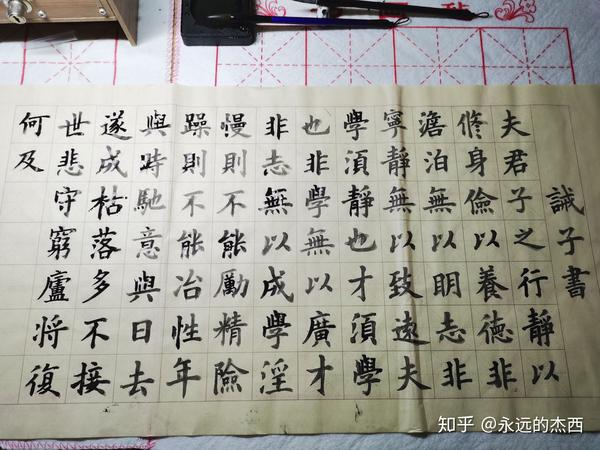 誡子書
夫君子之行靜以
修身儉以養德非
澹泊無以明志非
寧靜無以致遠夫
學須靜也才須學
也非學無以廣才
非志無以成學淫
慢則不能勵精險
躁則不能冶性年
與時馳意與日去
遂成枯落多不接
世悲守窮廬將復
何及
知乎 @永远的杰西